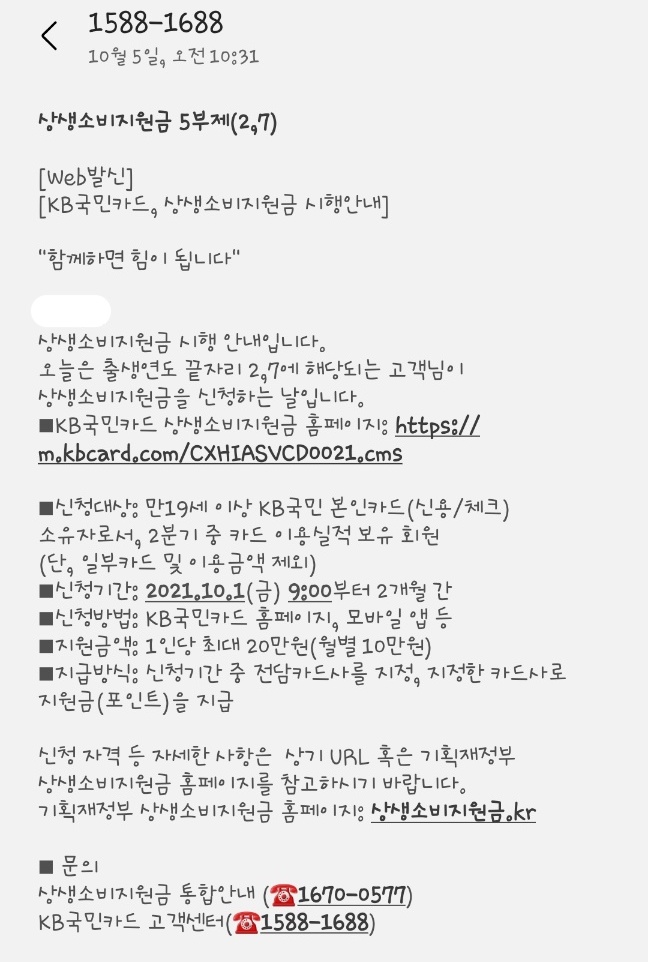 1588-1688
10월 5일, 오전 10:31
상생소비지원금 5부제(2,7)
[Web발신]
[KB국민카드, 상생소비지원금 시행안내]
"함께하면 힘이 됩니다"
상생소비지원금 시행 안내입니다.
오늘은 출생연도 끝자리 2,7에 해당되는 고객님이
상생소비지원금을 신청하는 날입니다.
■KB국민카드 상생소비지원금 홈페이지: https://
m.kbcard.com/CXHIASVCD0021.cms
■신청대상: 만19세 이상 KB국민 본인카드(신용/체크)
소유자로서, 2분기 중 카드 이용실적 보유 회원
(단, 일부카드 및 이용금액 제외)
■신청기간: 2021.10.1(금) 9:00부터 2개월 간
■신청방법: KB국민카드 홈페이지, 모바일 앱 등
■지원금액: 1인당 최대 20만원(월별 10만원)
■지급방식: 신청기간 중 전담카드사를 지정, 지정한 카드사로
지원금(포인트)을 지급
신청 자격 등 자세한 사항은 상기 URL 혹은 기획재정부
상생소비지원금 홈페이지를 참고하시기 바랍니다.
기획재정부 상생소비지원금 홈페이지: 상생소비지원금.kr
■ 문의
상생소비지원금 통합안내 (☎1670-0577)
KB국민카드 고객센터(☎1588-1688)